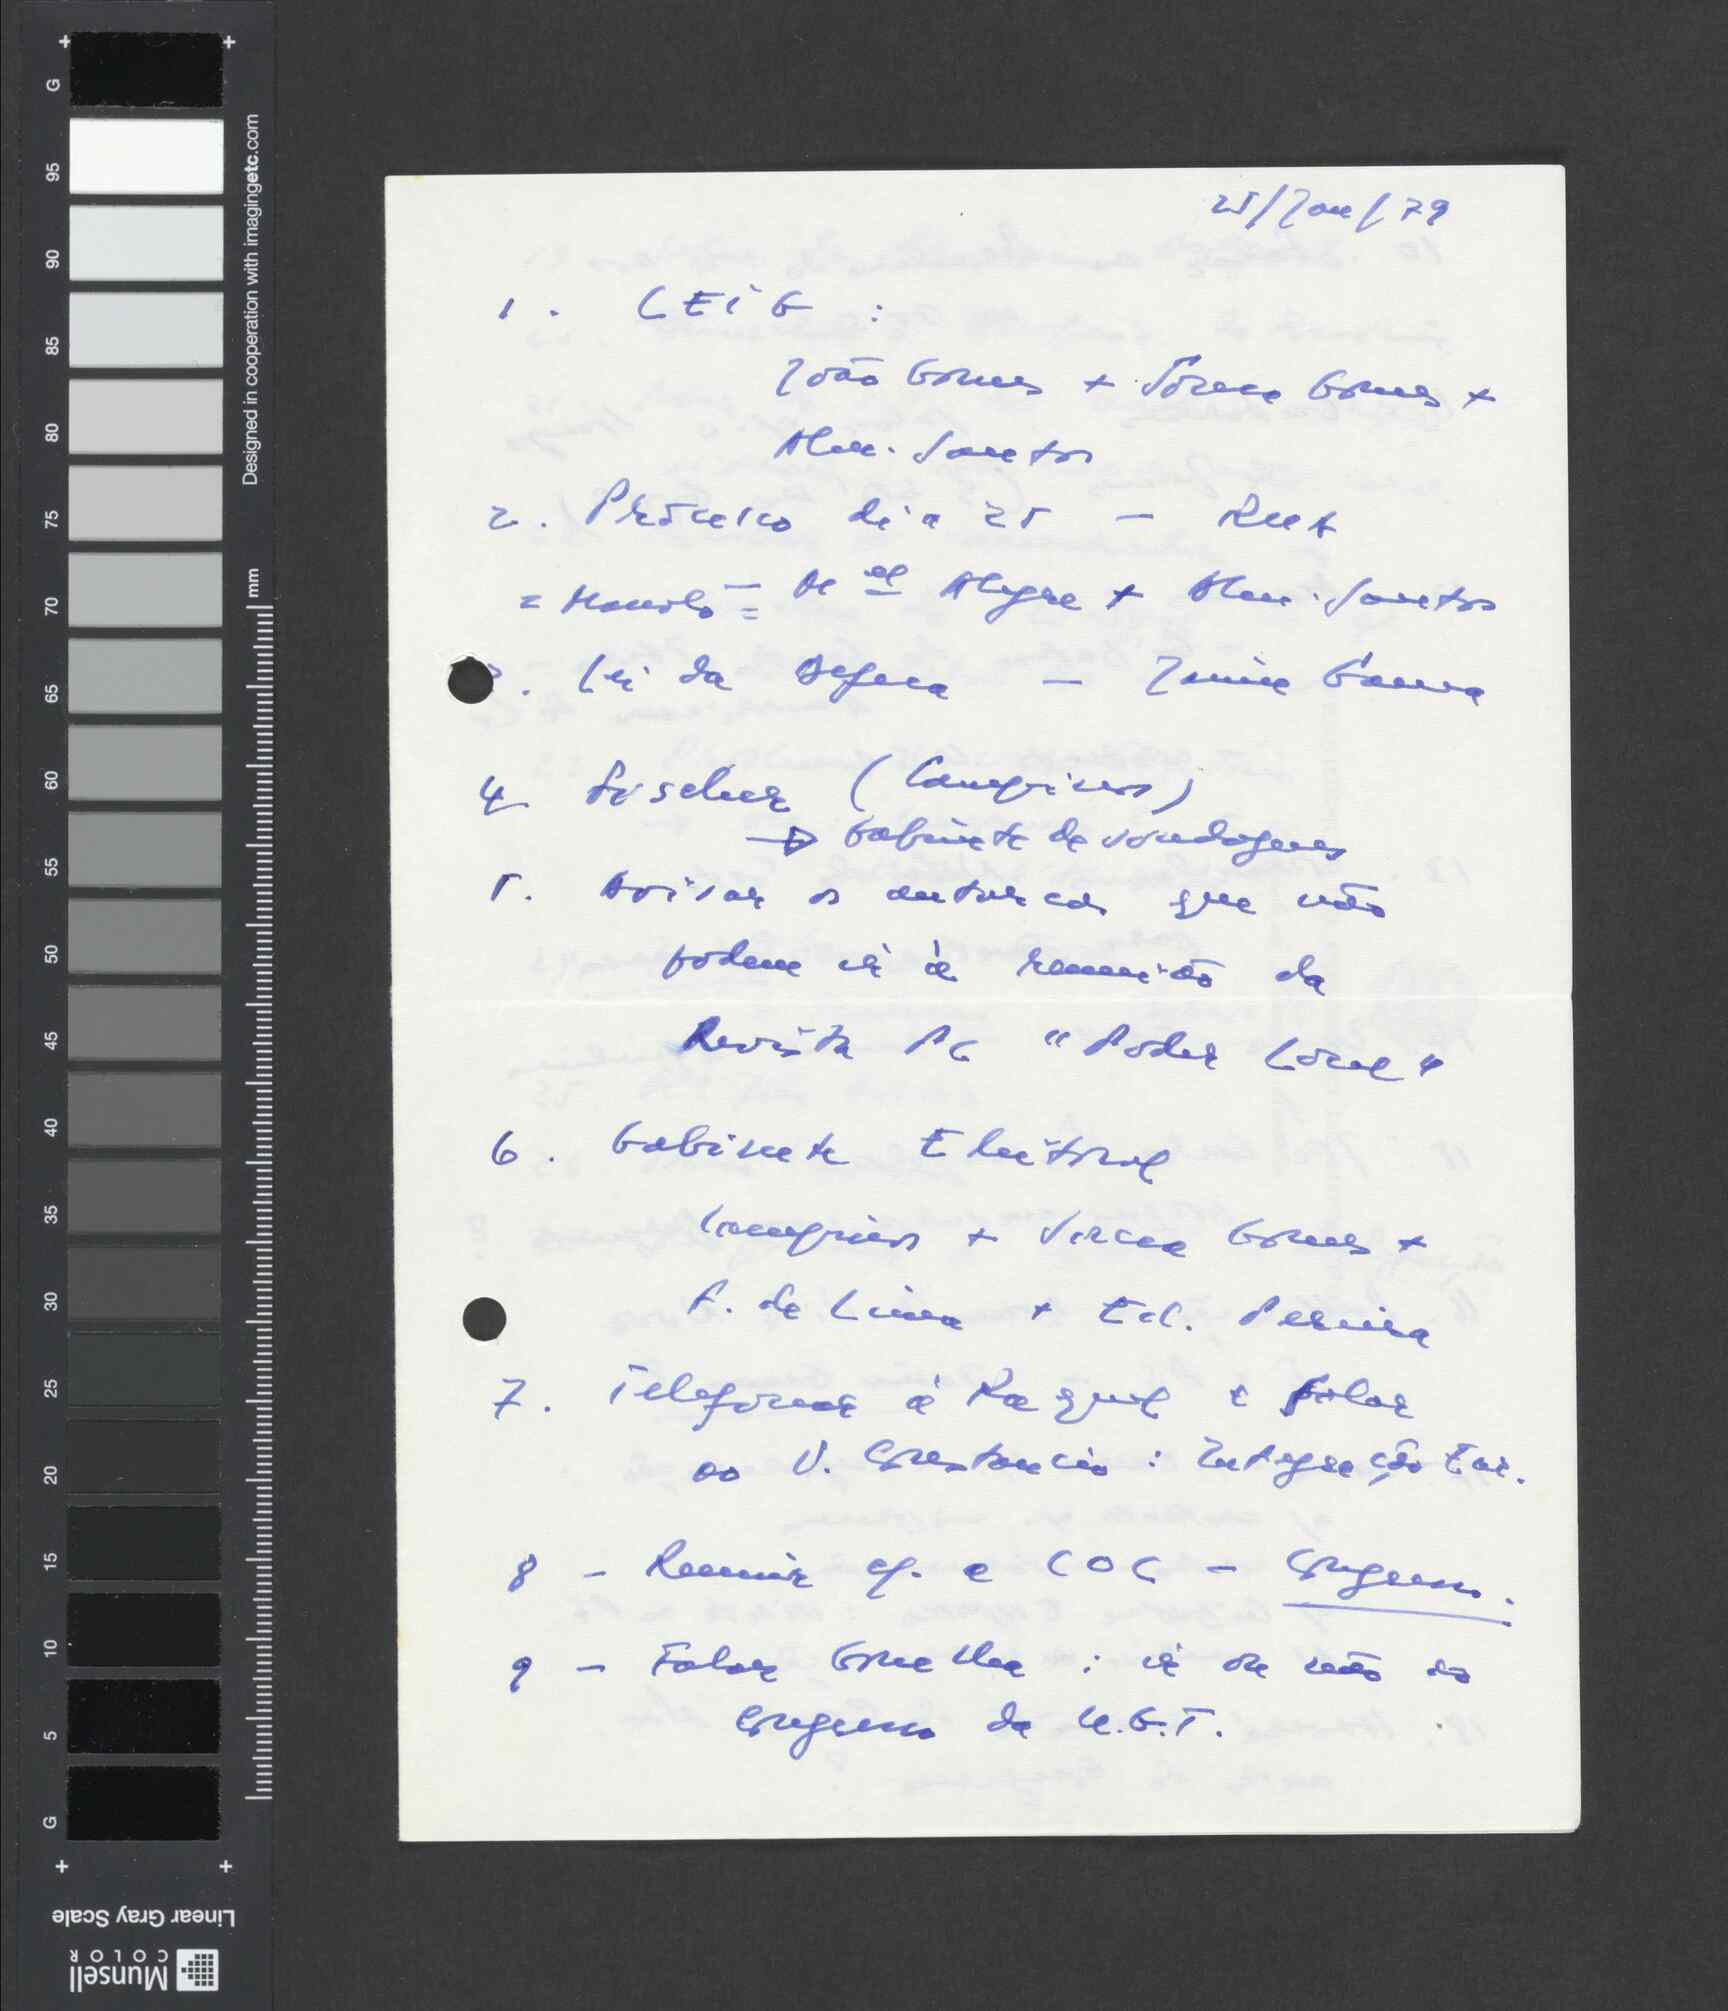 25/Jan/79
1. CEIG :
João Gomes + Sócrca Gomes +
Alm. Santos
2. Próximo dia 25 – Rui
= Marcelo = – M el Alegre + Alm. Santos
3. Lei da Defesa – Jaime Gama
4. Fischer (Campinos)
→ Gabinete de sondagens
5. Avisar os autarcas que não
podem ir à reunião da
Revista PC "Poder Local"
6. Gabinete Eleitoral
Campinos + Gomes +
A. de Lima + Ed. Pereira
7. Telefonar à Raquel e falar
ao V. Constancio : Integração Eur.
8 – Reunir cf. a COC – Congresso.
9 – Falar Gonelha : ir ou não ao
Congresso da U.G.T.
Designed in cooperation with imagingetc.com
mm
G 95 90 85 80 75 70 65 60 55 50 45 40 35 30 25 20 15 10 5 G
Linear Gray Scale
Munsell
COLOR